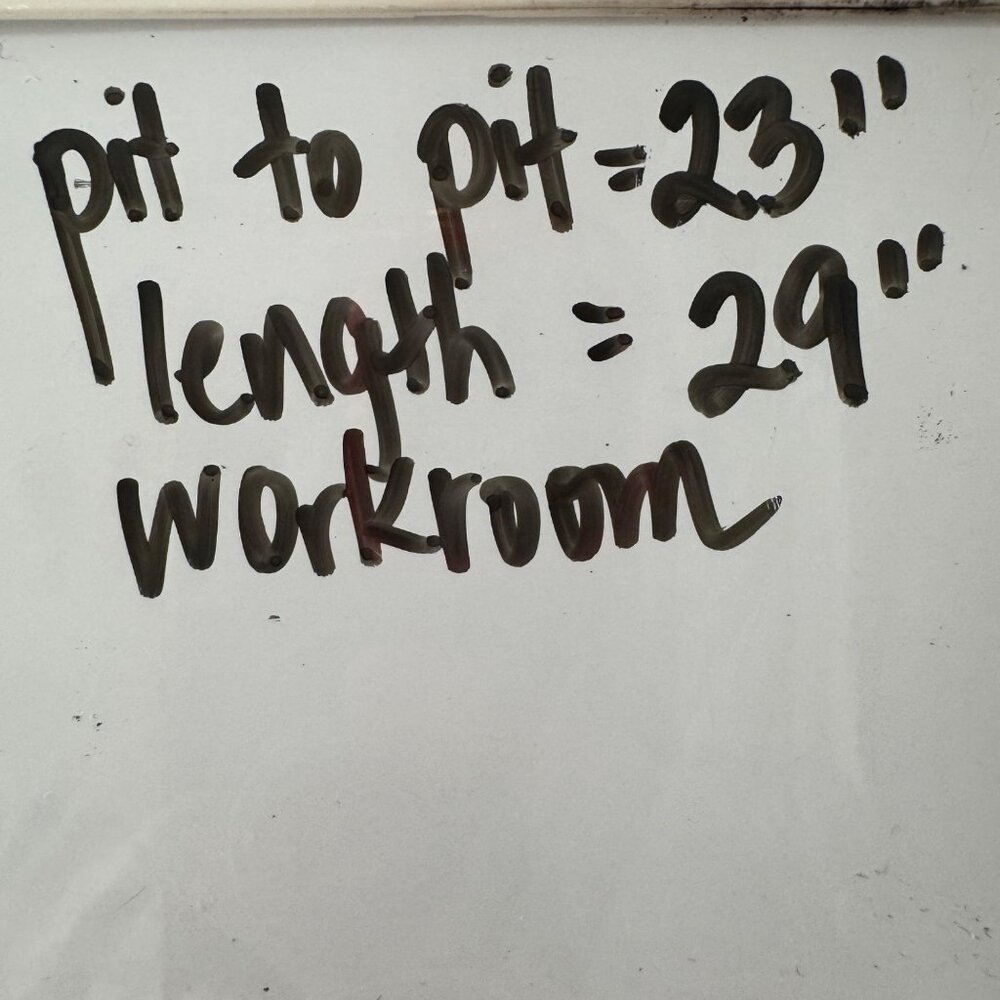 pit to pit = 23"
length = 29"
workroom